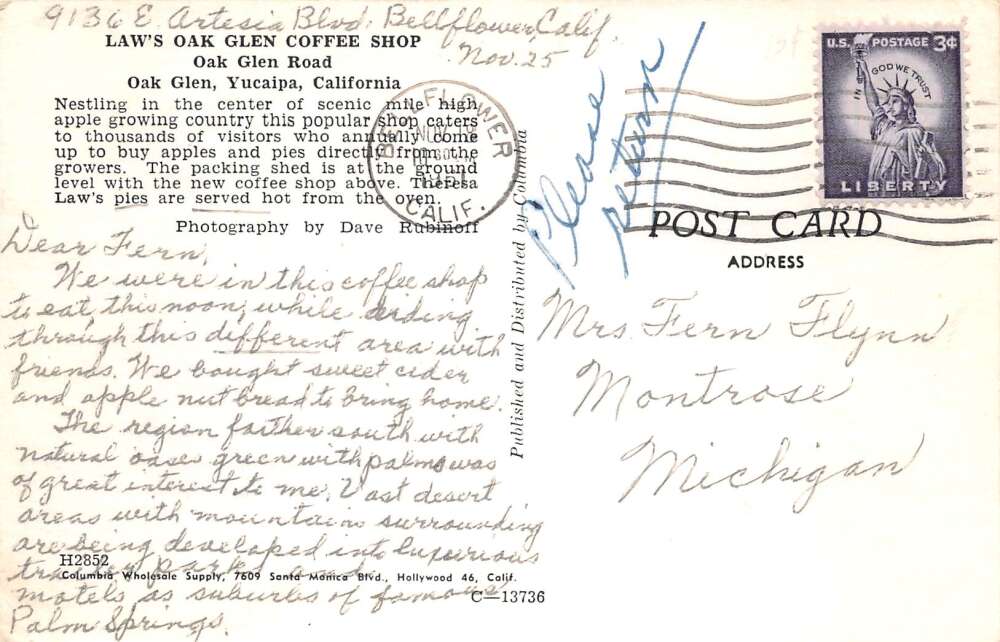 9136 E. Artesia Blvd. Bellflower, Calif.
Nov. 25
LAW'S OAK GLEN COFFEE SHOP
Oak Glen Road
Oak Glen, Yucaipa, California
Nestling in the center of scenic mile high
apple growing country this popular shop caters
to thousands of visitors who annually come
up to buy apples and pies directly from the
growers. The packing shed is at the ground
level with the new coffee shop above. Theresa
Law's pies are served hot from the oven.
Photography by Dave Rubinoff
Dear Fern,
We were in this coffee shop
to eat this noon, while riding
through this different area with
friends. We bought sweet cider
and apple nut bread to bring home.
The region farther south with
natural oases green with palms was
of great interest to me. Vast desert
areas with mountains surrounding
are being developed into luxurious
trailer parks and
motels as suburbs of famous
Palm Springs.
H2852
Columbia Wholesale Supply, 7609 Santa Monica Blvd., Hollywood 46, Calif.
C—13736
Published and Distributed by Columbia
BELLFLOWER
NOV
CALIF.
Please
return
U.S. POSTAGE 3¢
IN GOD WE TRUST
LIBERTY
POST CARD
ADDRESS
Mrs. Fern Flynn
Montrose
Michigan